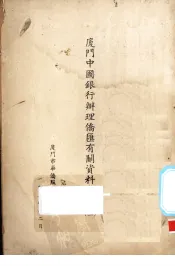 廈門中國銀行辦理僑匯有關資料
廈門市華僑
月